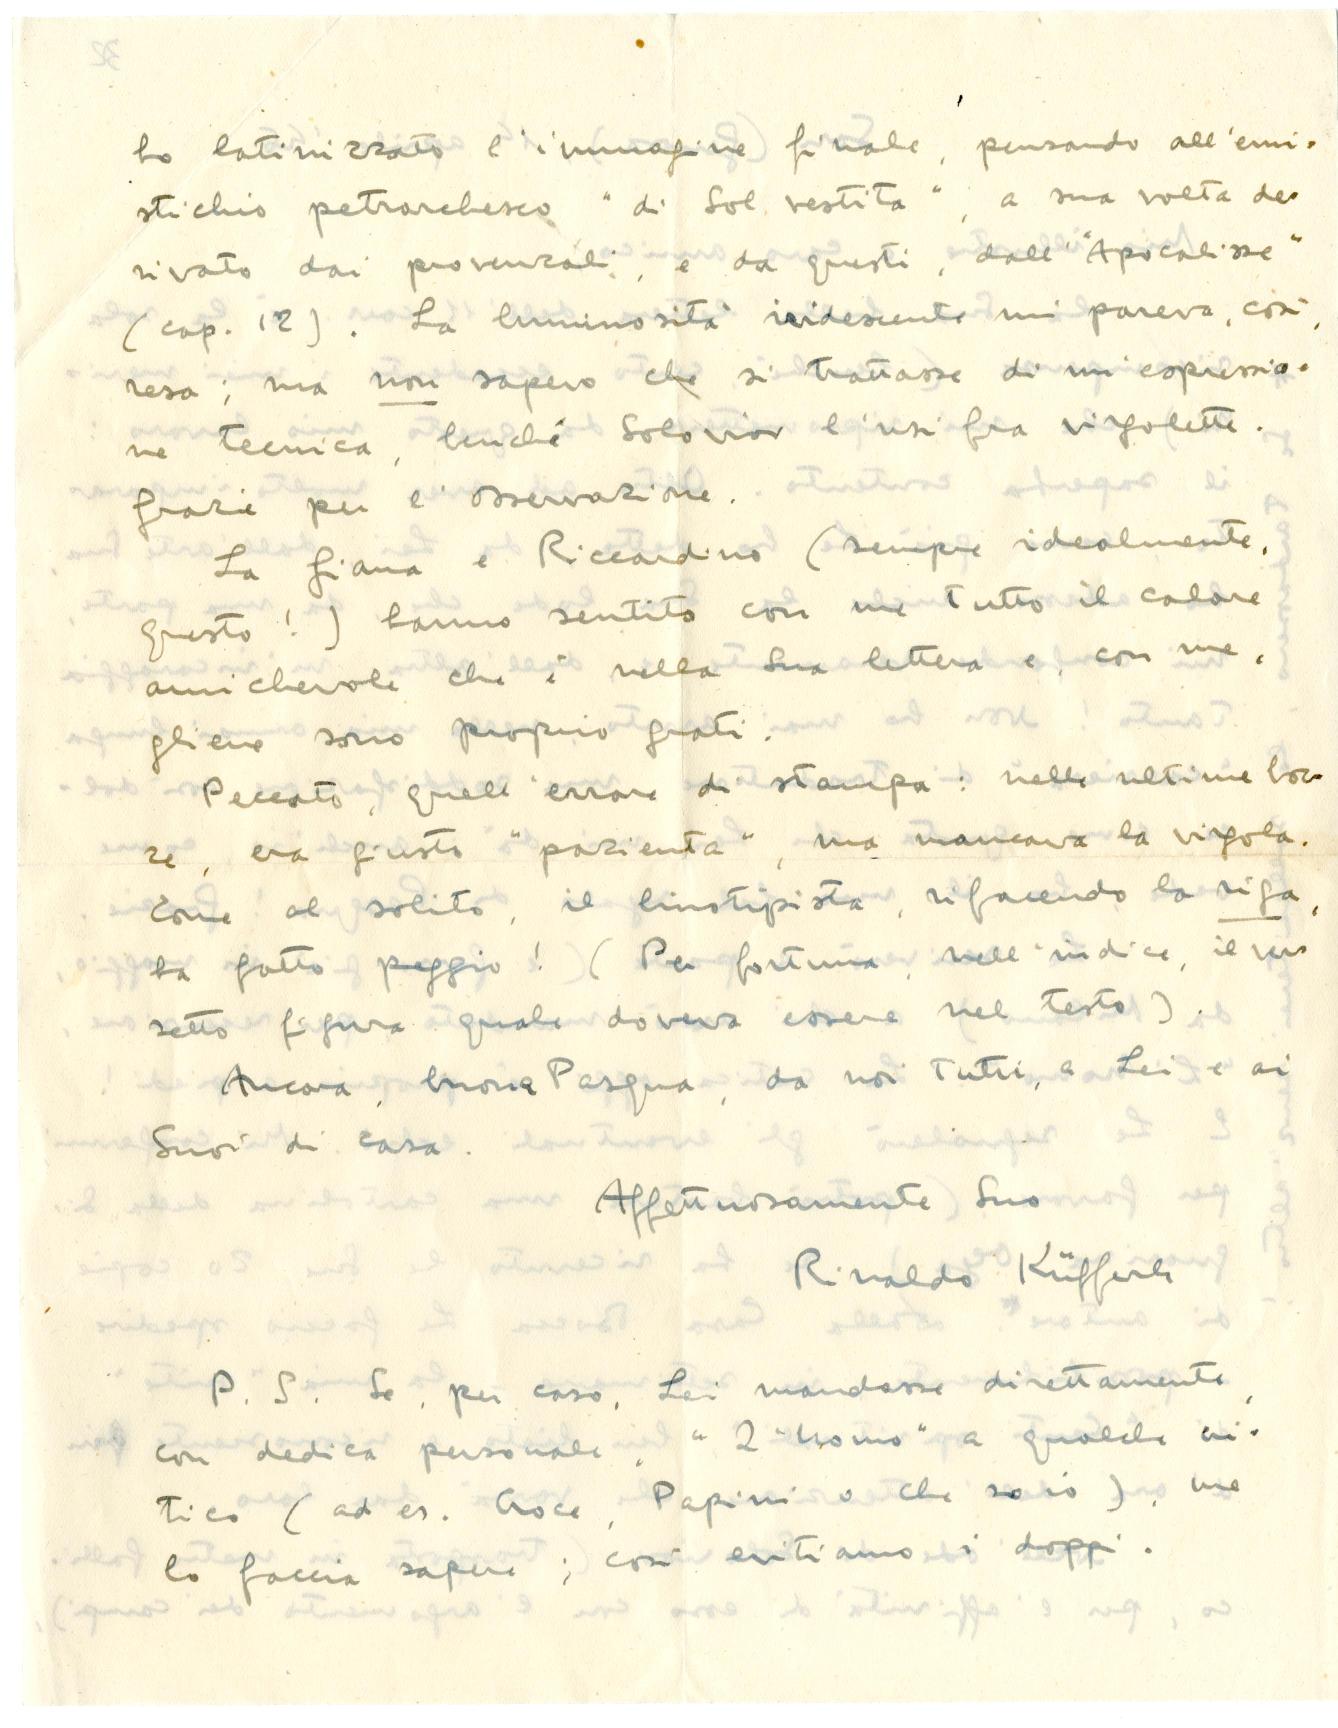 ho latinizzato l'immagine finale, pensando all'emi-
stichio petrarchesco "di Sol vestita", a sua volta de-
rivato dai provenzali, e da questi, dall'"Apocalisse"
(cap. 12). La luminosità iridescente mi pareva, così,
resa; ma non sapevo che si trattasse di un'espressio-
ne tecnica, benché Soloviov l'usi fra virgolette.
Grazie per l'osservazione.
La Giana e Riccardino (sempre idealmente,
questo!) hanno sentito con me tutto il calore
amichevole che è nella Sua lettera e, con me,
gliene sono proprio grati.
Peccato, quell'errore di stampa: nelle ultime boz-
ze, era giusto "pazienta", ma mancava la virgola.
Come al solito, il linotipista, rifacendo la riga,
ha fatto peggio! (Per fortuna, nell'indice, il ver-
setto figura quale doveva essere nel testo).
Ancora, buona Pasqua, da noi tutti, a Lei e ai
Suoi di casa.
Affettuosamente Suo
Rinaldo Küfferle
P. S. Se, per caso, Lei mandasse direttamente,
con dedica personale, "L'Uomo" a qualche cri-
tico (ad es. Croce, Papini o che so io), me
lo faccia sapere; così evitiamo i doppi.